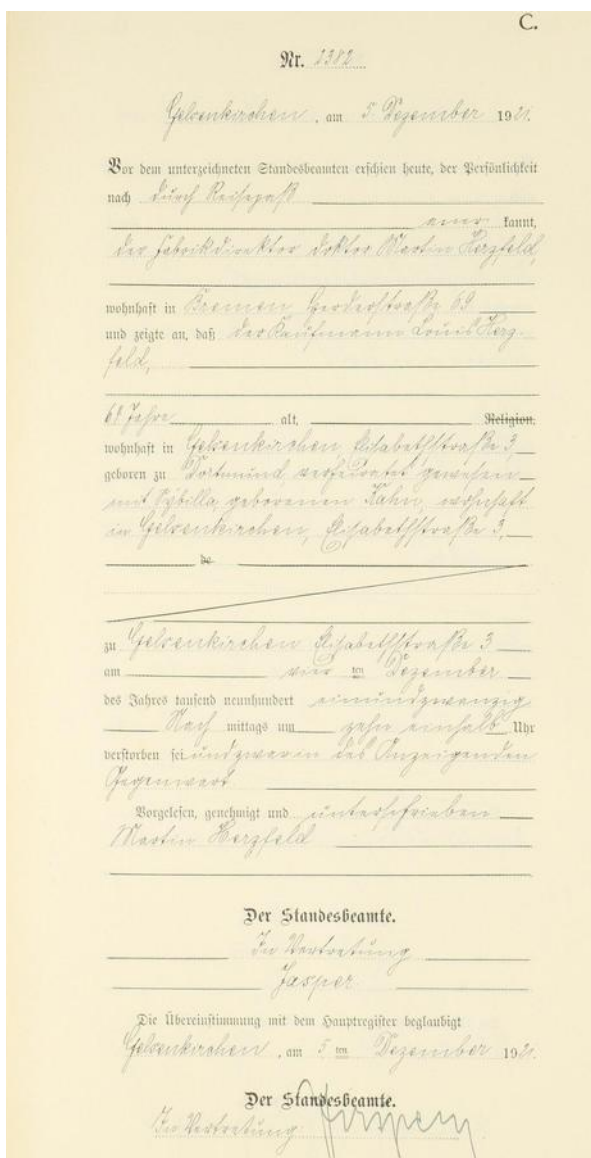 C.
Nr. 2382
Gelsenkirchen, am 5. Dezember 1921.
Vor dem unterzeichneten Standesbeamten erschien heute, der Persönlichkeit
nach durch Reisepaß
aner kannt,
der Fabrikdirektor Doktor Martin Herzfeld,
wohnhaft in Bremen, Herderstraße 69
und zeigte an, daß der Kaufmann Louis Herz-
feld,
Jahre alt, Religion,
wohnhaft in Gelsenkirchen, Elisabethstraße 3,
geboren zu Dortmund, verheiratet gewesen
mit Sybilla geborenen Kahn, wohnhaft
in Gelsenkirchen, Elisabethstraße 3,
de
zu Gelsenkirchen Elisabethstraße 3
am vier ten Dezember
des Jahres tausend neunhundert einundzwanzig
Nach mittags um zehn einhalb Uhr
verstorben sei und zwar in des Anzeigenden
Gegenwart
Vorgelesen, genehmigt und unterschrieben
Martin Herzfeld
Der Standesbeamte.
In Vertretung
Jasper
Die Übereinstimmung mit dem Hauptregister beglaubigt
Gelsenkirchen, am 5 ten Dezember 1921.
Der Standesbeamte.
In Vertretung: Jaspers